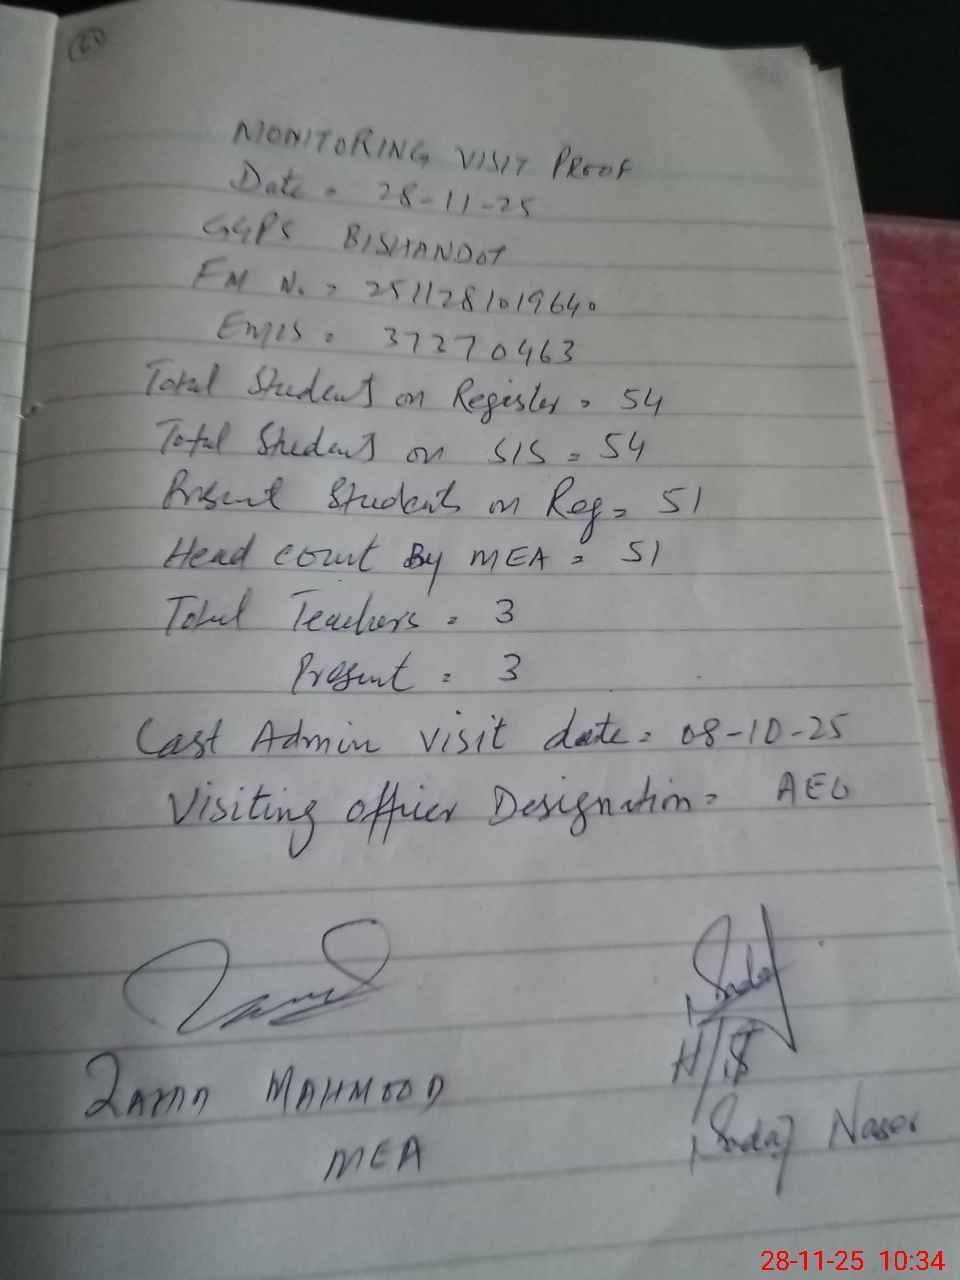 MONITORING VISIT PROOF
Date = 28-11-25
GGPS BISHANDOT
FM No. = 2511281019640
Emis = 37270463
Total Students on Register = 54
Total Students on SIS = 54
Present Students on Reg = 51
Head count By MEA = 51
Total Teachers = 3
Present = 3
Last Admin visit date = 08-10-25
Visiting officer Designation = AEO
MAHMOOD
MEA
H/S
28-11-25 10:34